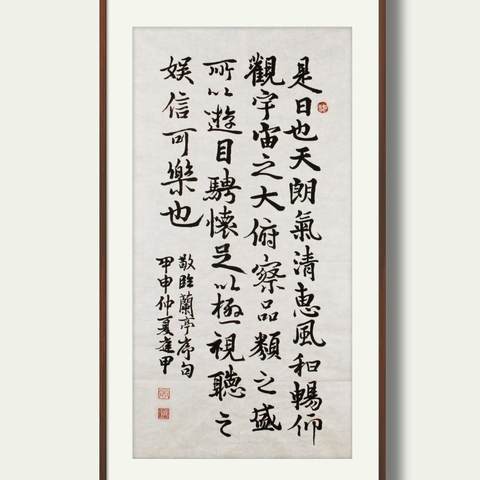 是日也天朗氣清惠風和暢仰
觀宇宙之大俯察品類之盛
所以遊目騁懷足以極視聽之
娱信可樂也
敬臨蘭亭序句
甲申仲夏莲甲